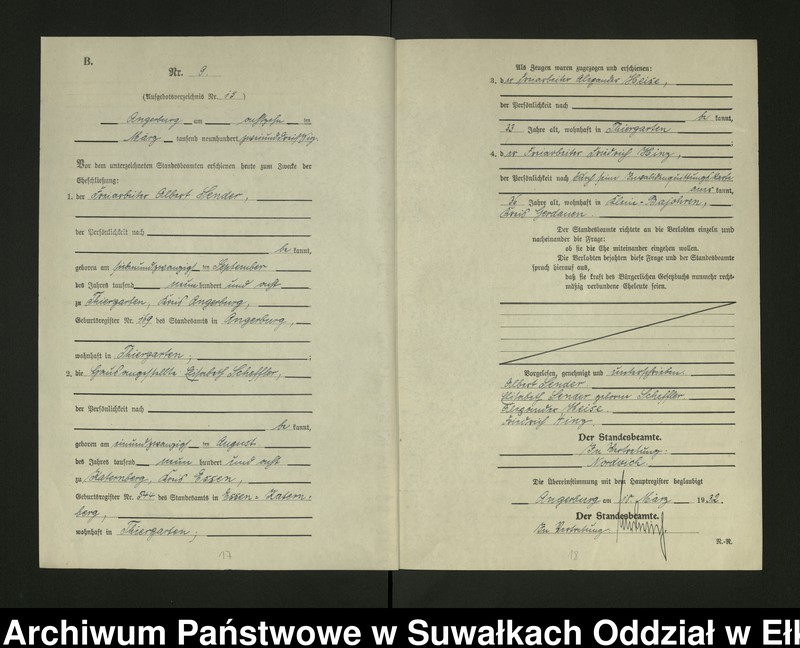 B.
Nr. 9.
(Aufgebotsverzeichnis Nr. 13)
Angerburg am achtzehn ten
März tausend neunhundert zweiunddreißig.
Vor dem unterzeichneten Standesbeamten erschienen heute zum Zwecke der
Eheschließung:
1. der Freiarbeiter Albert Sender,
der Persönlichkeit nach
be kannt,
geboren am siebenundzwanzigsten September
des Jahres tausend neun hundert und acht
zu Thiergarten, Kreis Angerburg,
Geburtsregister Nr. 119 des Standesamts in Angerburg,
wohnhaft in Thiergarten;
2. die Hausangestellte Elisabeth Scheffler,
der Persönlichkeit nach
be kannt,
geboren am einundzwanzigsten August
des Jahres tausend neun hundert und acht
zu Katernberg, Kreis Essen,
Geburtsregister Nr. 544 des Standesamts in Essen-Katern-
berg,
wohnhaft in Thiergarten;
17
Als Zeugen waren zugezogen und erschienen:
3. der Freiarbeiter Alexander Heise,
der Persönlichkeit nach
be kannt,
23 Jahre alt, wohnhaft in Thiergarten
4. der Freiarbeiter Friedrich
der Persönlichkeit nach durch seine Invalidenquittungskarte
aner kannt,
26 Jahre alt, wohnhaft in Klein-Bajohren,
Kreis Gerdauen.
Der Standesbeamte richtete an die Verlobten einzeln und
nacheinander die Frage:
ob sie die Ehe miteinander eingehen wollen.
Die Verlobten bejahten diese Frage und der Standesbeamte
sprach hierauf aus,
daß sie kraft des Bürgerlichen Gesetzbuchs nunmehr recht-
mäßig verbundene Eheleute seien.
Vorgelesen, genehmigt und unterschrieben
Albert Sender
Elisabeth Sender geborene Scheffler
Alexander Heise.
Friedrich
Der Standesbeamte.
In Vertretung.
Die Übereinstimmung mit dem Hauptregister beglaubigt
Angerburg am 18. März 1932.
Der Standesbeamte.
In Vertretung
R.-R.
18
Archiwum Państwowe w Suwałkach Oddział w Ełk